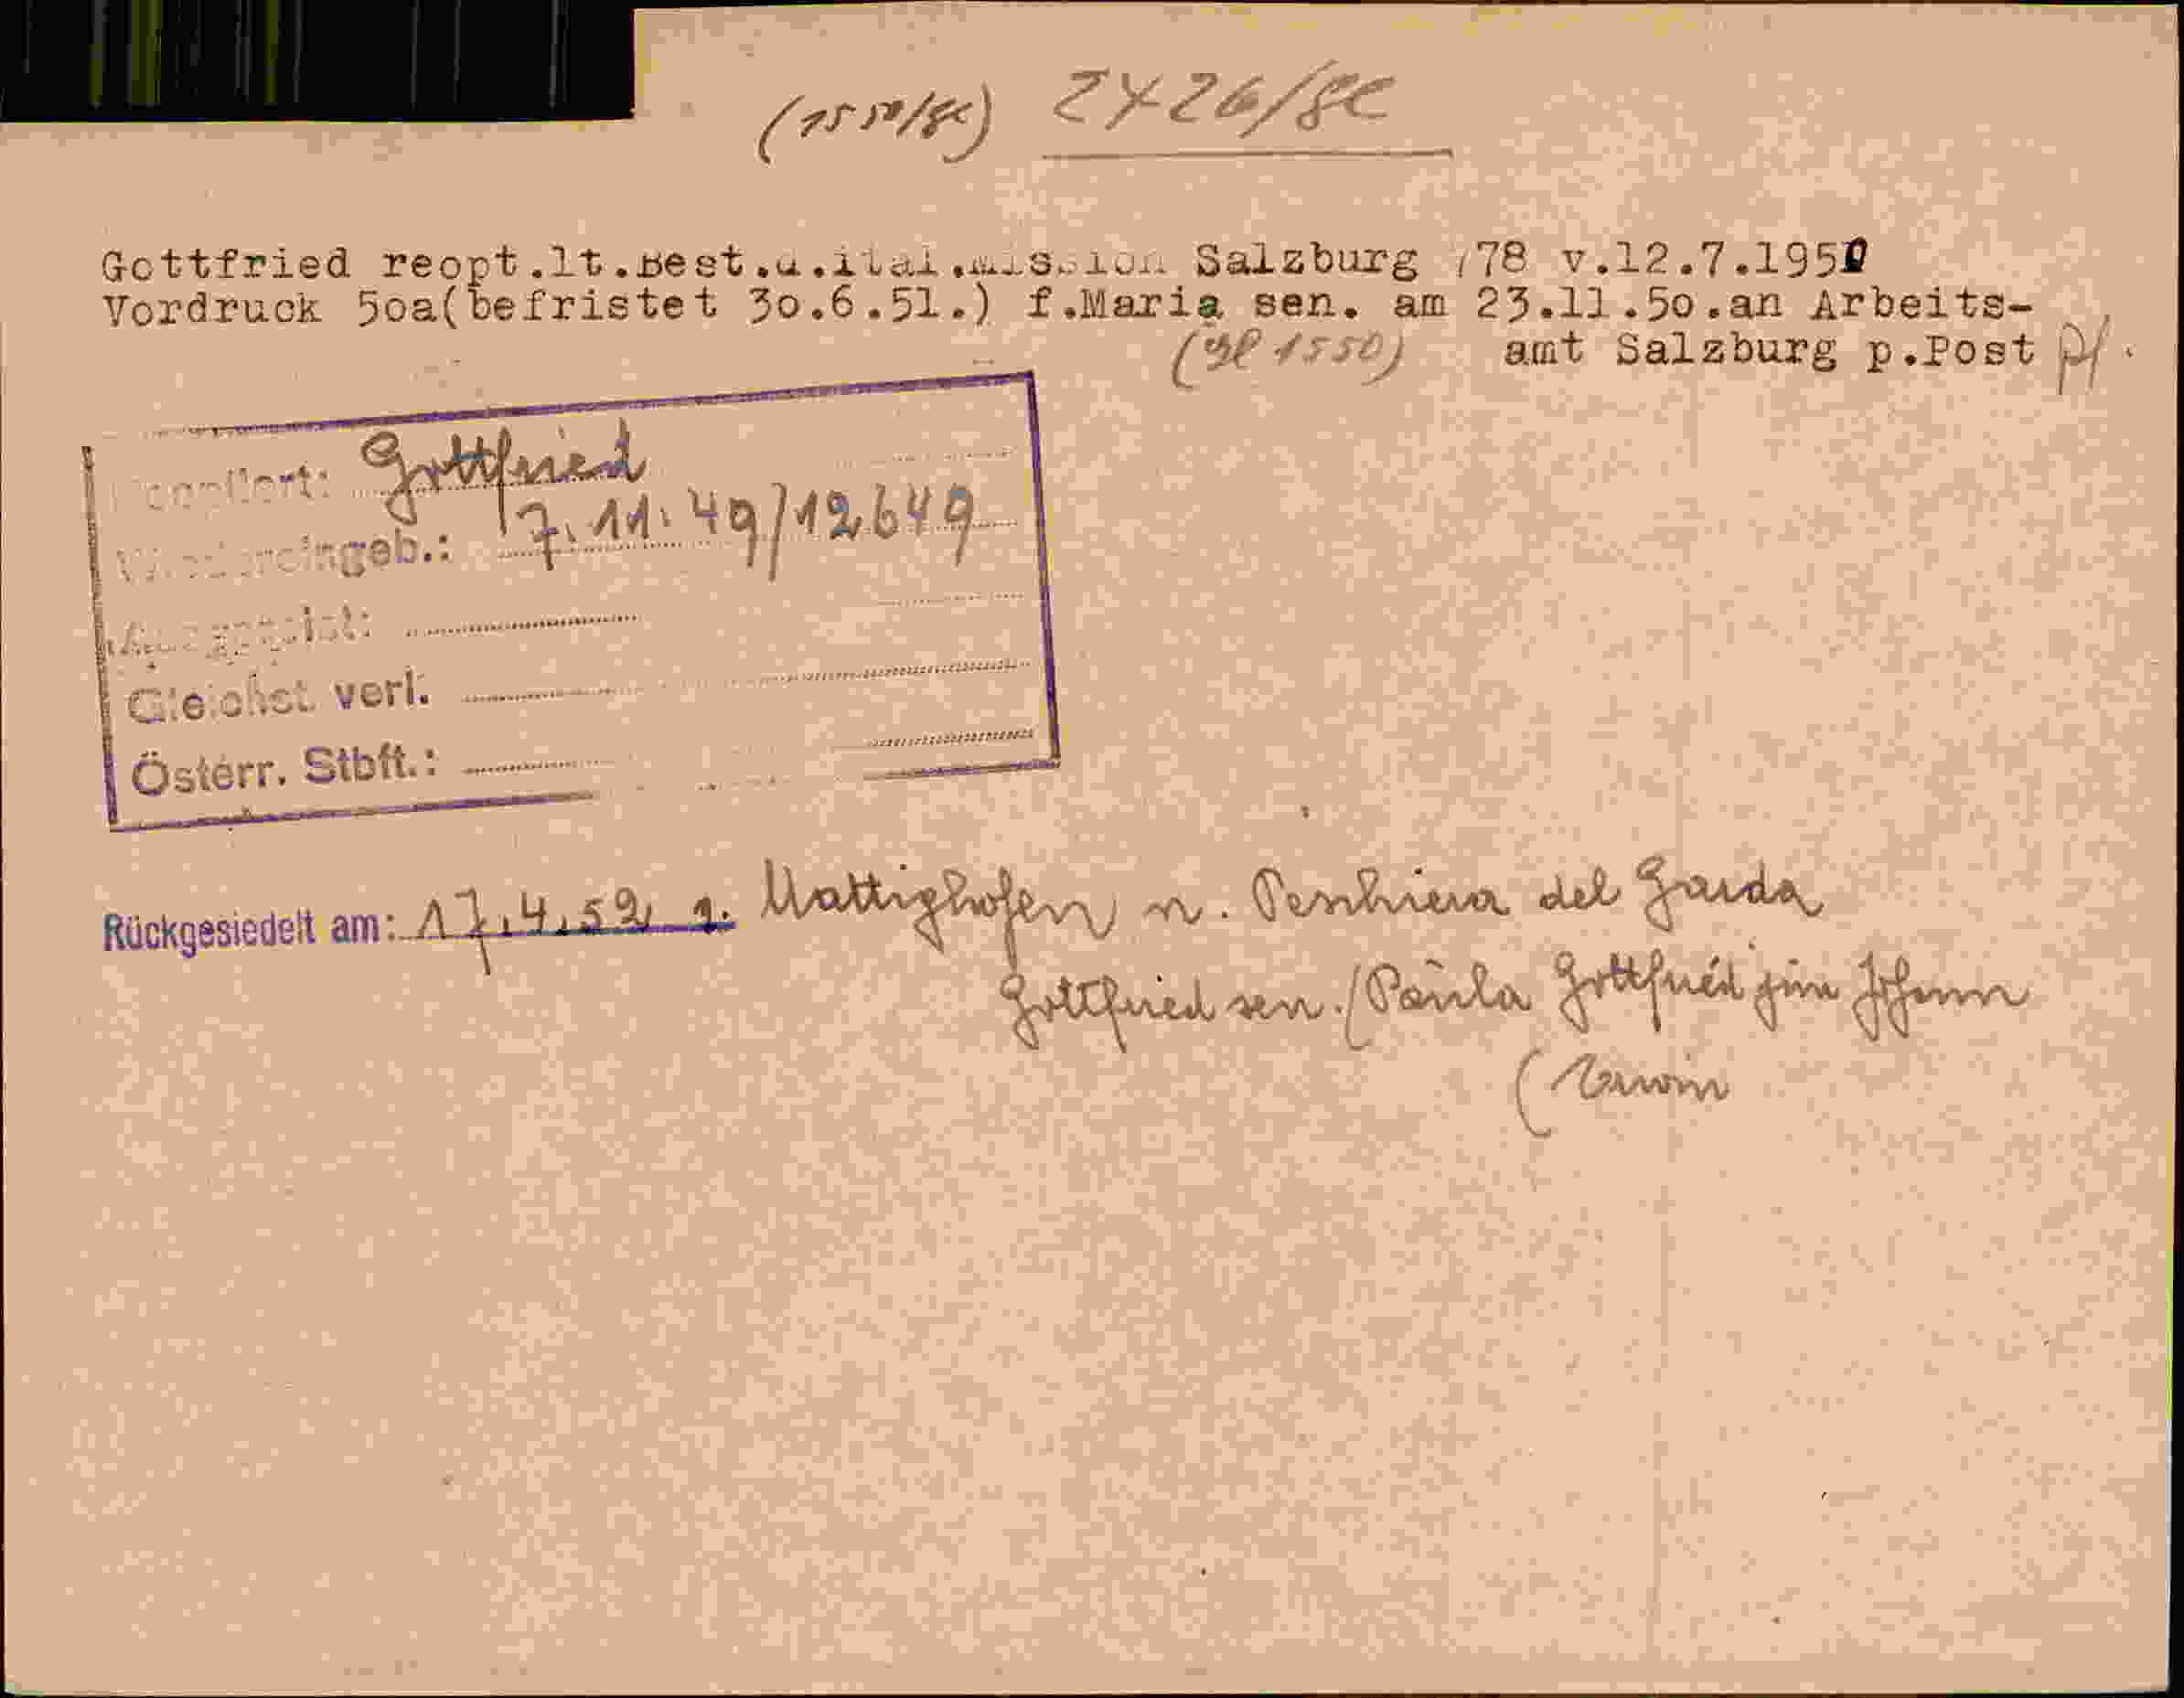 (1550/gl) 2426/gl
Gottfried reopt.lt.Best.d.ital.Mission Salzburg 778 v.12.7.1950
Vordruck 5oa(befristet 3o.6.51.) f.Maria sen. am 23.11.5o.an Arbeits-
(gl 1550) amt Salzburg p.Post
Gottfried
Wiedereingeb.: 7.11.49/12649
Gleichst. verl.
Österr. Stbft.:
Rückgesiedelt am: 17.4.52 v. Mattighofen n. Peschiera del Garda
Gottfried sen./Paula Gottfried jun Johann
(Erwin